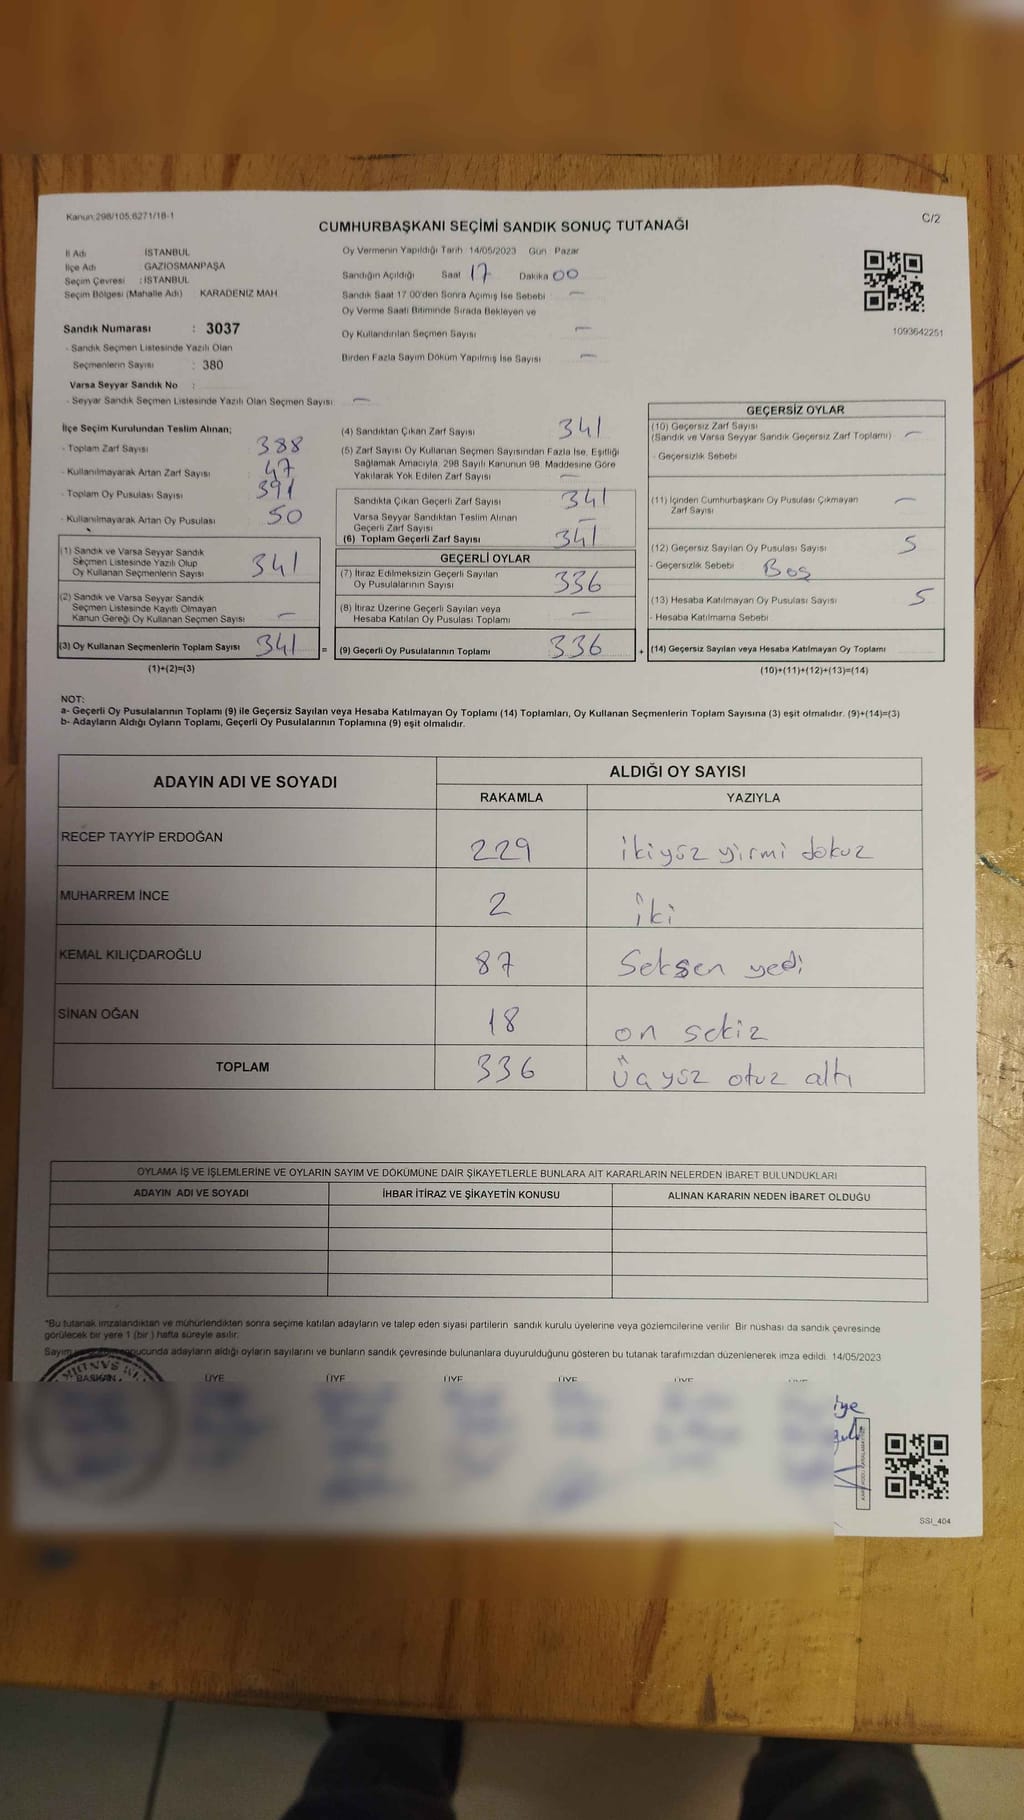 Kanun:298/105,6271/18-1
C/2
CUMHURBAŞKANI SEÇİMİ SANDIK SONUÇ TUTANAĞI
İl Adı İSTANBUL
İlçe Adı GAZİOSMANPAŞA
Seçim Çevresi : İSTANBUL
Seçim Bölgesi (Mahalle Adı) KARADENİZ MAH.
Sandık Numarası : 3037
- Sandık Seçmen Listesinde Yazılı Olan
Seçmenlerin Sayısı : 380
Varsa Seyyar Sandık No :
- Seyyar Sandık Seçmen Listesinde Yazılı Olan Seçmen Sayısı: —
Oy Vermenin Yapıldığı Tarih 14/05/2023 Gün Pazar
Sandığın Açıldığı Saat 17 Dakika 00
Sandık Saat 17:00'den Sonra Açımış İse Sebebi : —
Oy Verme Saati Bitiminde Sırada Bekleyen ve
Oy Kullandırılan Seçmen Sayısı —
Birden Fazla Sayım Döküm Yapılmış İse Sayısı —
1093642251
İlçe Seçim Kurulundan Teslim Alınan;
- Toplam Zarf Sayısı 388
- Kullanılmayarak Artan Zarf Sayısı 47
- Toplam Oy Pusulası Sayısı 391
- Kullanılmayarak Artan Oy Pusulası 50
(1) Sandık ve Varsa Seyyar Sandık
Seçmen Listesinde Yazılı Olup
Oy Kullanan Seçmenlerin Sayısı 341
(2) Sandık ve Varsa Seyyar Sandık
Seçmen Listesinde Kayıtlı Olmayan
Kanun Gereği Oy Kullanan Seçmen Sayısı —
(3) Oy Kullanan Seçmenlerin Toplam Sayısı 341 =
(1)+(2)=(3)
(4) Sandıktan Çıkan Zarf Sayısı 341
(5) Zarf Sayısı Oy Kullanan Seçmen Sayısından Fazla İse, Eşitliği
Sağlamak Amacıyla, 298 Sayılı Kanunun 98. Maddesine Göre
Yakılarak Yok Edilen Zarf Sayısı —
Sandıkta Çıkan Geçerli Zarf Sayısı 341
Varsa Seyyar Sandıktan Teslim Alınan
Geçerli Zarf Sayısı —
(6) Toplam Geçerli Zarf Sayısı 341
GEÇERLİ OYLAR
(7) İtiraz Edilmeksizin Geçerli Sayılan
Oy Pusulalarının Sayısı 336
(8) İtiraz Üzerine Geçerli Sayılan veya
Hesaba Katılan Oy Pusulası Toplamı —
(9) Geçerli Oy Pusulalarının Toplamı 336 +
GEÇERSİZ OYLAR
(10) Geçersiz Zarf Sayısı
(Sandık ve Varsa Seyyar Sandık Geçersiz Zarf Toplamı) —
- Geçersizlik Sebebi
(11) İçinden Cumhurbaşkanı Oy Pusulası Çıkmayan
Zarf Sayısı —
(12) Geçersiz Sayılan Oy Pusulası Sayısı 5
- Geçersizlik Sebebi Boş
(13) Hesaba Katılmayan Oy Pusulası Sayısı 5
- Hesaba Katılmama Sebebi
(14) Geçersiz Sayılan veya Hesaba Katılmayan Oy Toplamı
(10)+(11)+(12)+(13)=(14)
NOT:
a- Geçerli Oy Pusulalarının Toplamı (9) ile Geçersiz Sayılan veya Hesaba Katılmayan Oy Toplamı (14) Toplamları, Oy Kullanan Seçmenlerin Toplam Sayısına (3) eşit olmalıdır. (9)+(14)=(3)
b- Adayların Aldığı Oyların Toplamı, Geçerli Oy Pusulalarının Toplamına (9) eşit olmalıdır.
ADAYIN ADI VE SOYADI
ALDIĞI OY SAYISI
RAKAMLA YAZIYLA
RECEP TAYYİP ERDOĞAN 229 ikiyüz yirmi dokuz
MUHARREM İNCE 2 iki
KEMAL KILIÇDAROĞLU 87 Seksen yedi
SİNAN OĞAN 18 on sekiz
TOPLAM 336 Üçyüz otuz altı
OYLAMA İŞ VE İŞLEMLERİNE VE OYLARIN SAYIM VE DÖKÜMÜNE DAİR ŞİKAYETLERLE BUNLARA AİT KARARLARIN NELERDEN İBARET BULUNDUKLARI
ADAYIN ADI VE SOYADI İHBAR İTİRAZ VE ŞİKAYETİN KONUSU ALINAN KARARIN NEDEN İBARET OLDUĞU
*Bu tutanak imzalandıktan ve mühürlendikten sonra seçime katılan adayların ve talep eden siyasi partilerin sandık kurulu üyelerine veya gözlemcilerine verilir. Bir nüshası da sandık çevresinde
görülecek bir yere 1 (bir ) hafta süreyle asılır.
adayların aldığı oyların sayılarını ve bunların sandık çevresinde bulunanlara duyurulduğunu gösteren bu tutanak tarafımızdan düzenlenerek imza edildi. 14/05/2023
BAŞKAN ÜYE ÜYE ÜYE ÜYE ÜYE
SSI_404